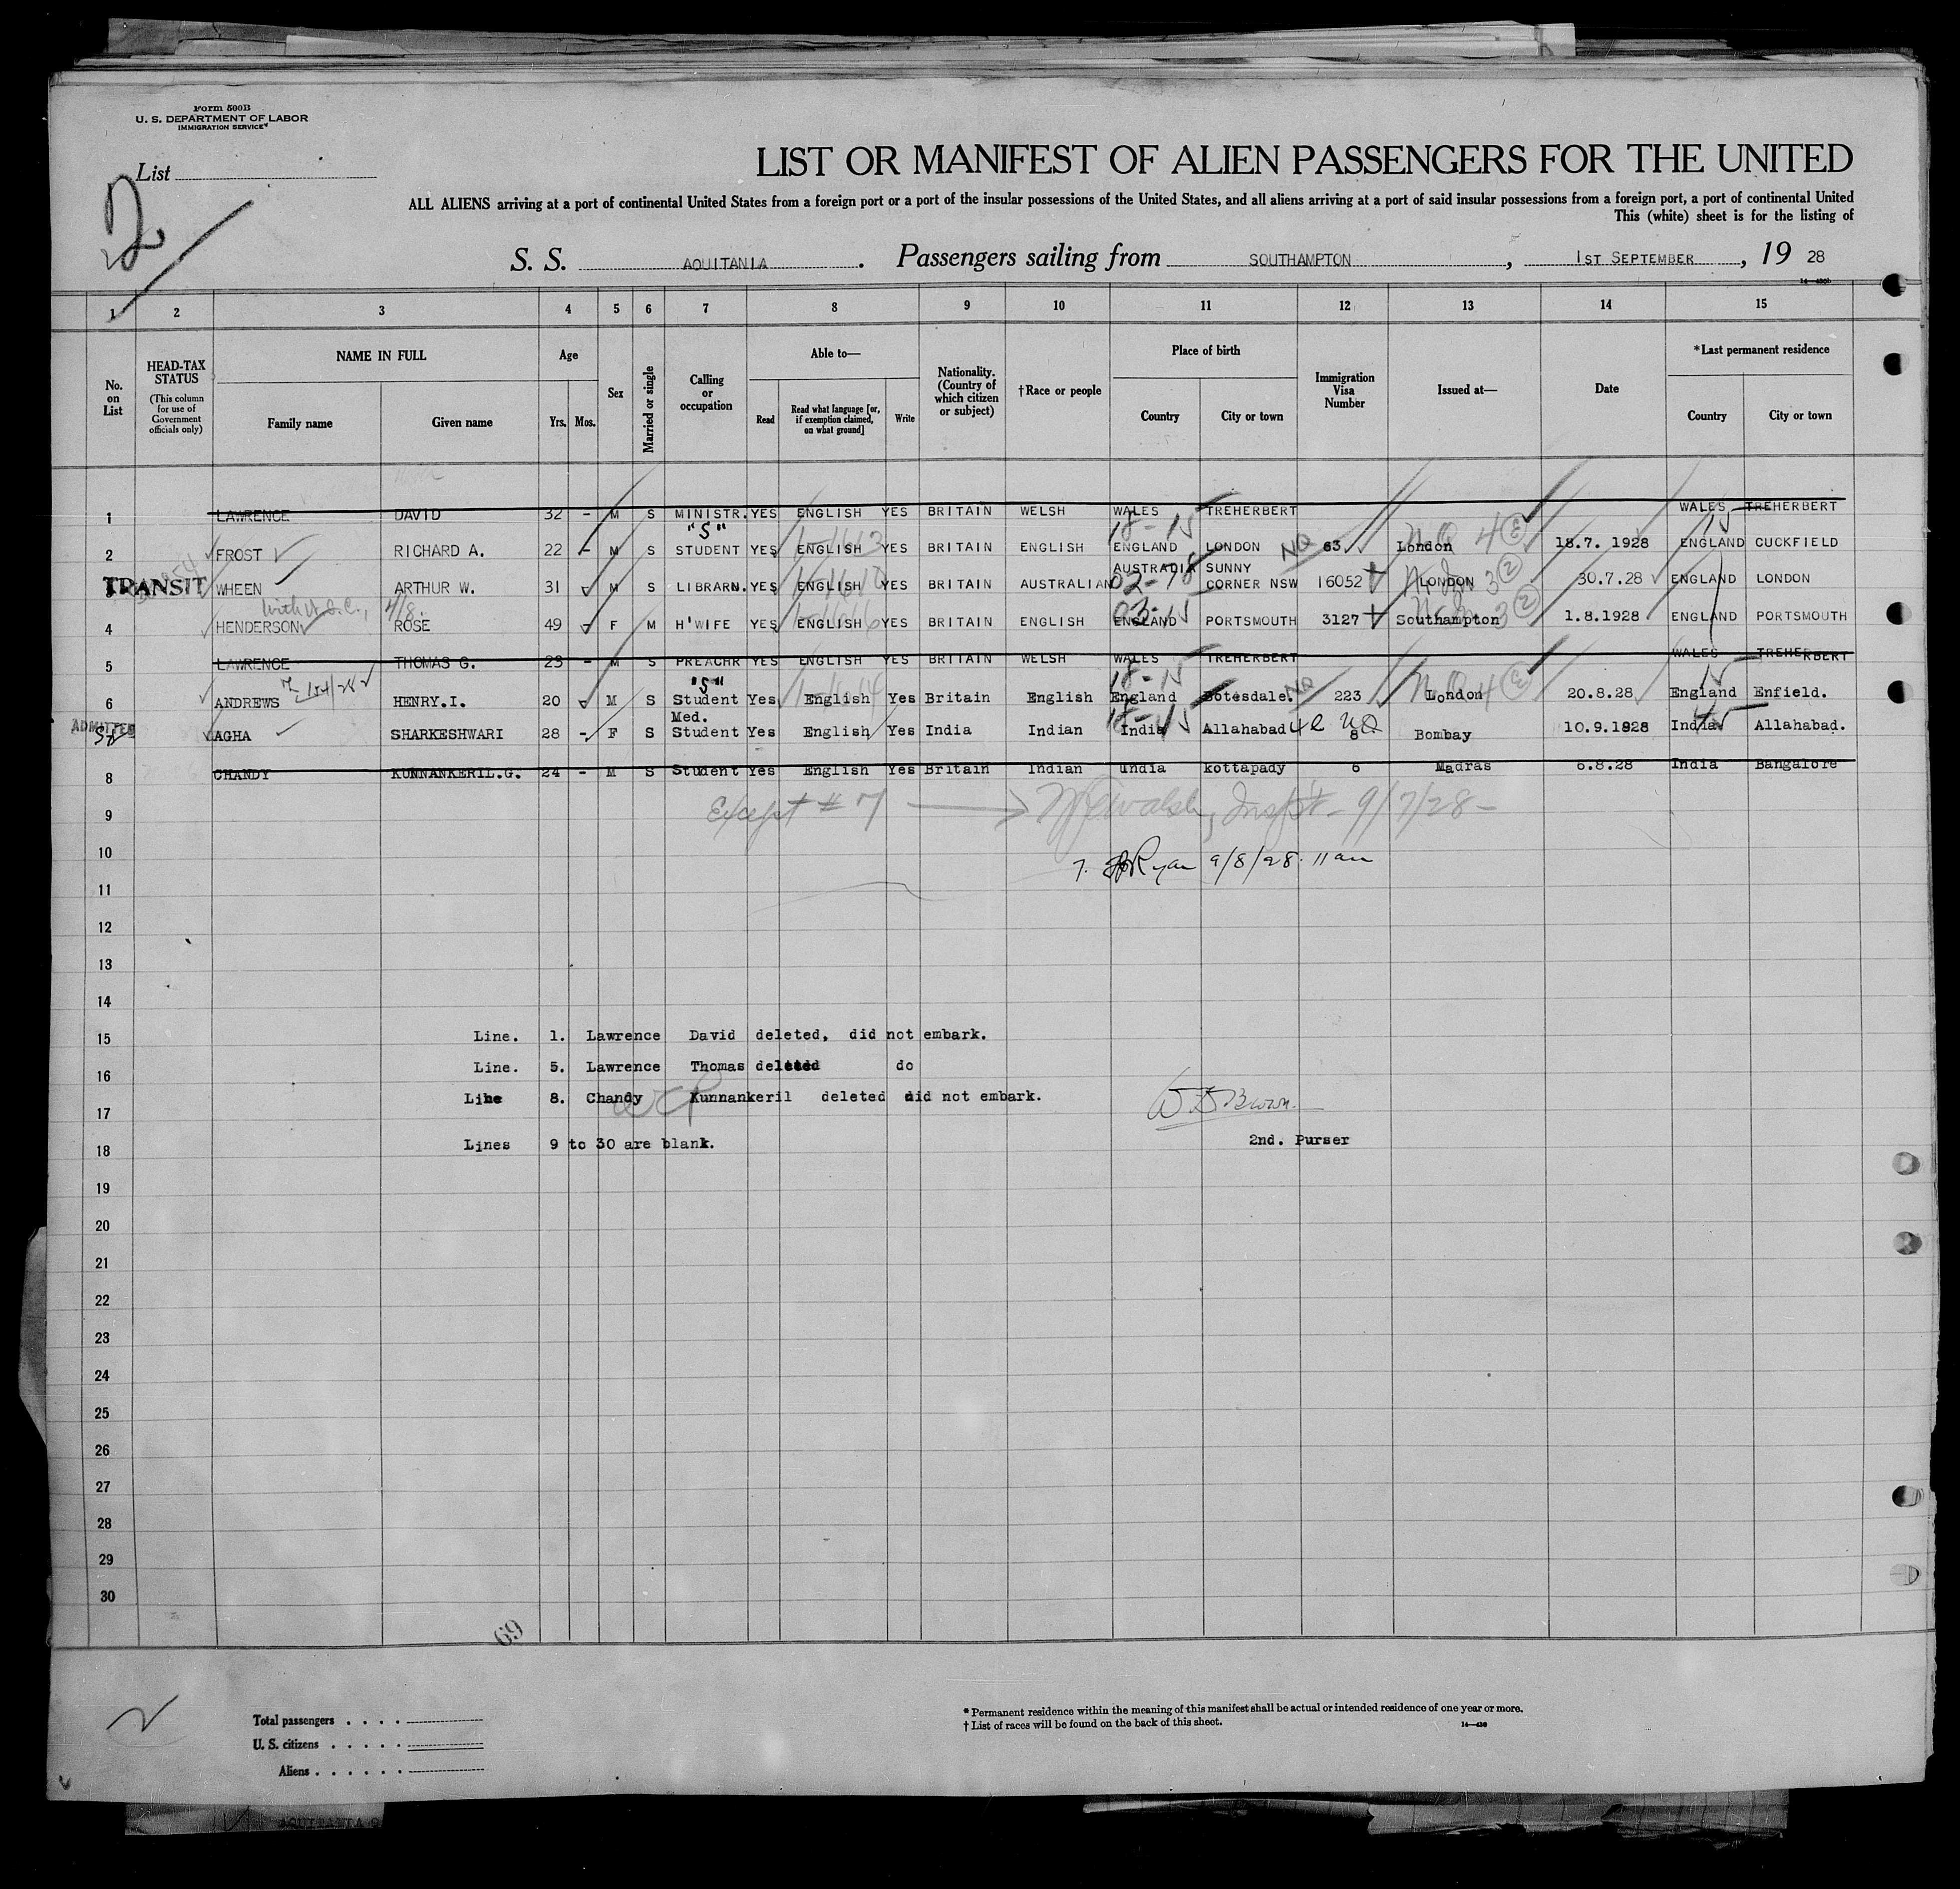 Form 500B
U. S. DEPARTMENT OF LABOR
IMMIGRATION SERVICE
List
2
LIST OR MANIFEST OF ALIEN PASSENGERS FOR THE UNITED
ALL ALIENS arriving at a port of continental United States from a foreign port or a port of the insular possessions of the United States, and all aliens arriving at a port of said insular possessions from a foreign port, a port of continental United
This (white) sheet is for the listing of
S. S. AQUITANIA. Passengers sailing from SOUTHAMPTON, 1ST SEPTEMBER, 19 28
1 2 3 4 5 6 7 8 9 10 11 12 13 14 15
No. on List
HEAD-TAX STATUS (This column for use of Government officials only)
NAME IN FULL
Family name Given name
Age
Yrs. Mos.
Sex
Married or single
Calling or occupation
Able to—
Read Read what language [or, if exemption claimed, on what ground] Write
Nationality. (Country of which citizen or subject)
†Race or people
Place of birth
Country City or town
Immigration Visa Number
Issued at—
Date
*Last permanent residence
Country City or town
1 LAWRENCE DAVID 32 - M S MINISTR. YES ENGLISH YES BRITAIN WELSH WALES TREHERBERT WALES TREHERBERT
"S" 18-15 15
2 FROST RICHARD A. 22 - M S STUDENT YES ENGLISH YES BRITAIN ENGLISH ENGLAND LONDON NQ 63 London NQ 4 18.7. 1928 ENGLAND CUCKFIELD
TRANSIT
3 WHEEN ARTHUR W. 31 - M S LIBRARN. YES ENGLISH YES BRITAIN AUSTRALIAN AUSTRALIA SUNNY CORNER NSW 16052 LONDON 3 (2) 30.7.28 ENGLAND LONDON
02-78
4 HENDERSON ROSE 49 - F M H'WIFE YES ENGLISH YES BRITAIN ENGLISH ENGLAND PORTSMOUTH 3127 Southampton 3 (2) 1.8.1928 ENGLAND PORTSMOUTH
03-15
5 LAWRENCE THOMAS G. 23 - M S PREACHR YES ENGLISH YES BRITAIN WELSH WALES TREHERBERT WALES TREHERBERT
"S" 18-15 15
6 ANDREWS HENRY.I. 20 - M S Student Yes English Yes Britain English England Botesdale. NQ 223 London NQ 4 20.8.28 England Enfield.
ADMITTED
AGHA SHARKESHWARI 28 - F S Med. Student Yes English Yes India Indian India Allahabad 8 Bombay 10.9.1928 India Allahabad.
8 CHANDY KUNNANKERIL.G. 24 - M S Student Yes English Yes Britain Indian undia kottapady 6 Madras 6.8.28 India Bangalore
9 Except # 7 Walsh, Insp't - 9/7/28 -
10 7. Ryan 9/8/28. 11 am
11
12
13
14
15 Line. 1. Lawrence David deleted, did not embark.
16 Line. 5. Lawrence Thomas deleted do
17 Line 8. Chandy Kunnankeril deleted did not embark. Brown.
18 Lines 9 to 30 are blank. 2nd. Purser
19
20
21
22
23
24
25
26
27
28
29
30
69
Total passengers . . . .
U. S. citizens . . . . .
Aliens . . . . . .
* Permanent residence within the meaning of this manifest shall be actual or intended residence of one year or more.
† List of races will be found on the back of this sheet.